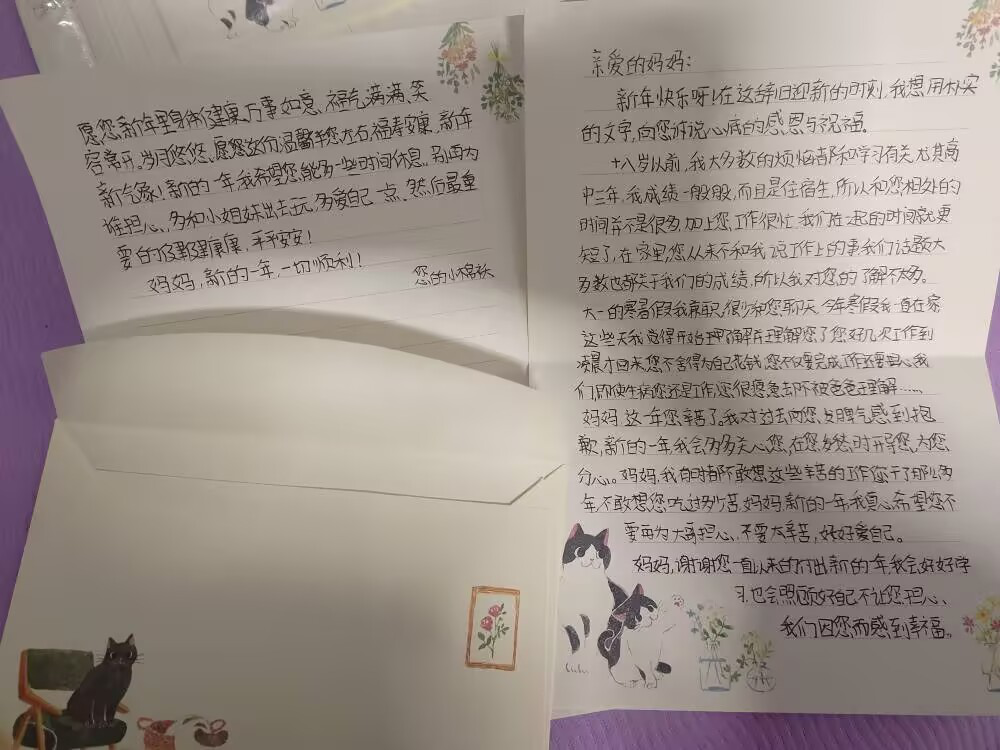 亲爱的妈妈：
新年快乐呀！在这辞旧迎新的时刻，我想用朴实
的文字，向您诉说心底的感恩与祝福。
十八岁以前，我大多数的烦恼都和学习有关尤其高
中三年，我成绩一般般，而且是住宿生，所以和您相处的
时间并不是很多，加上您工作很忙我们在一起的时间就更
短了，在家里，您从来不和我说工作上的事我们话题大
多数也都关于我们的成绩，所以我对您的了解不太多。
大一的寒暑假我兼职，很少和您聊天今年寒假我一直在家
这些天我觉得开始了解并理解您了您好几次工作到
凌晨才回来您不舍得为自己花钱，您不仅要完成工作还要担心我
们，即使生病您还是工作，您很疲惫却不被爸爸理解……
妈妈 这一年您辛苦了。我对过去向您发脾气感到抱
歉，新的一年，我会多多关心您，在您发愁时开导您，为您
分心。妈妈，我有时都不敢想这些辛苦的工作您干了那么多
年不敢想您吃过多少苦，妈妈，新的一年我真心希望您不
要再为大哥担心、不要太辛苦，好好爱自己。
妈妈，谢谢您一直以来的付出新的一年，我会好好学
习，也会照顾好自己不让您担心、
我们因您而感到幸福。
愿您新年里身体健康、万事如意、福气满满、笑
容常开。岁月悠悠，愿您这份温馨伴您左右福寿安康，新年
新气象！新的一年我希望您能多一些时间休息，别再为
谁担心、多和小姐妹出去玩，多爱自己一点、然后最重
要的健健康康，平平安安！
妈妈，新的一年，一切顺利！
您的小棉袄